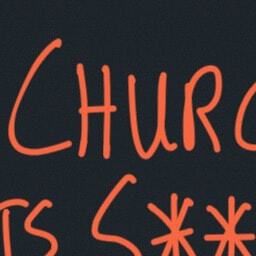 CHURC
TS S**